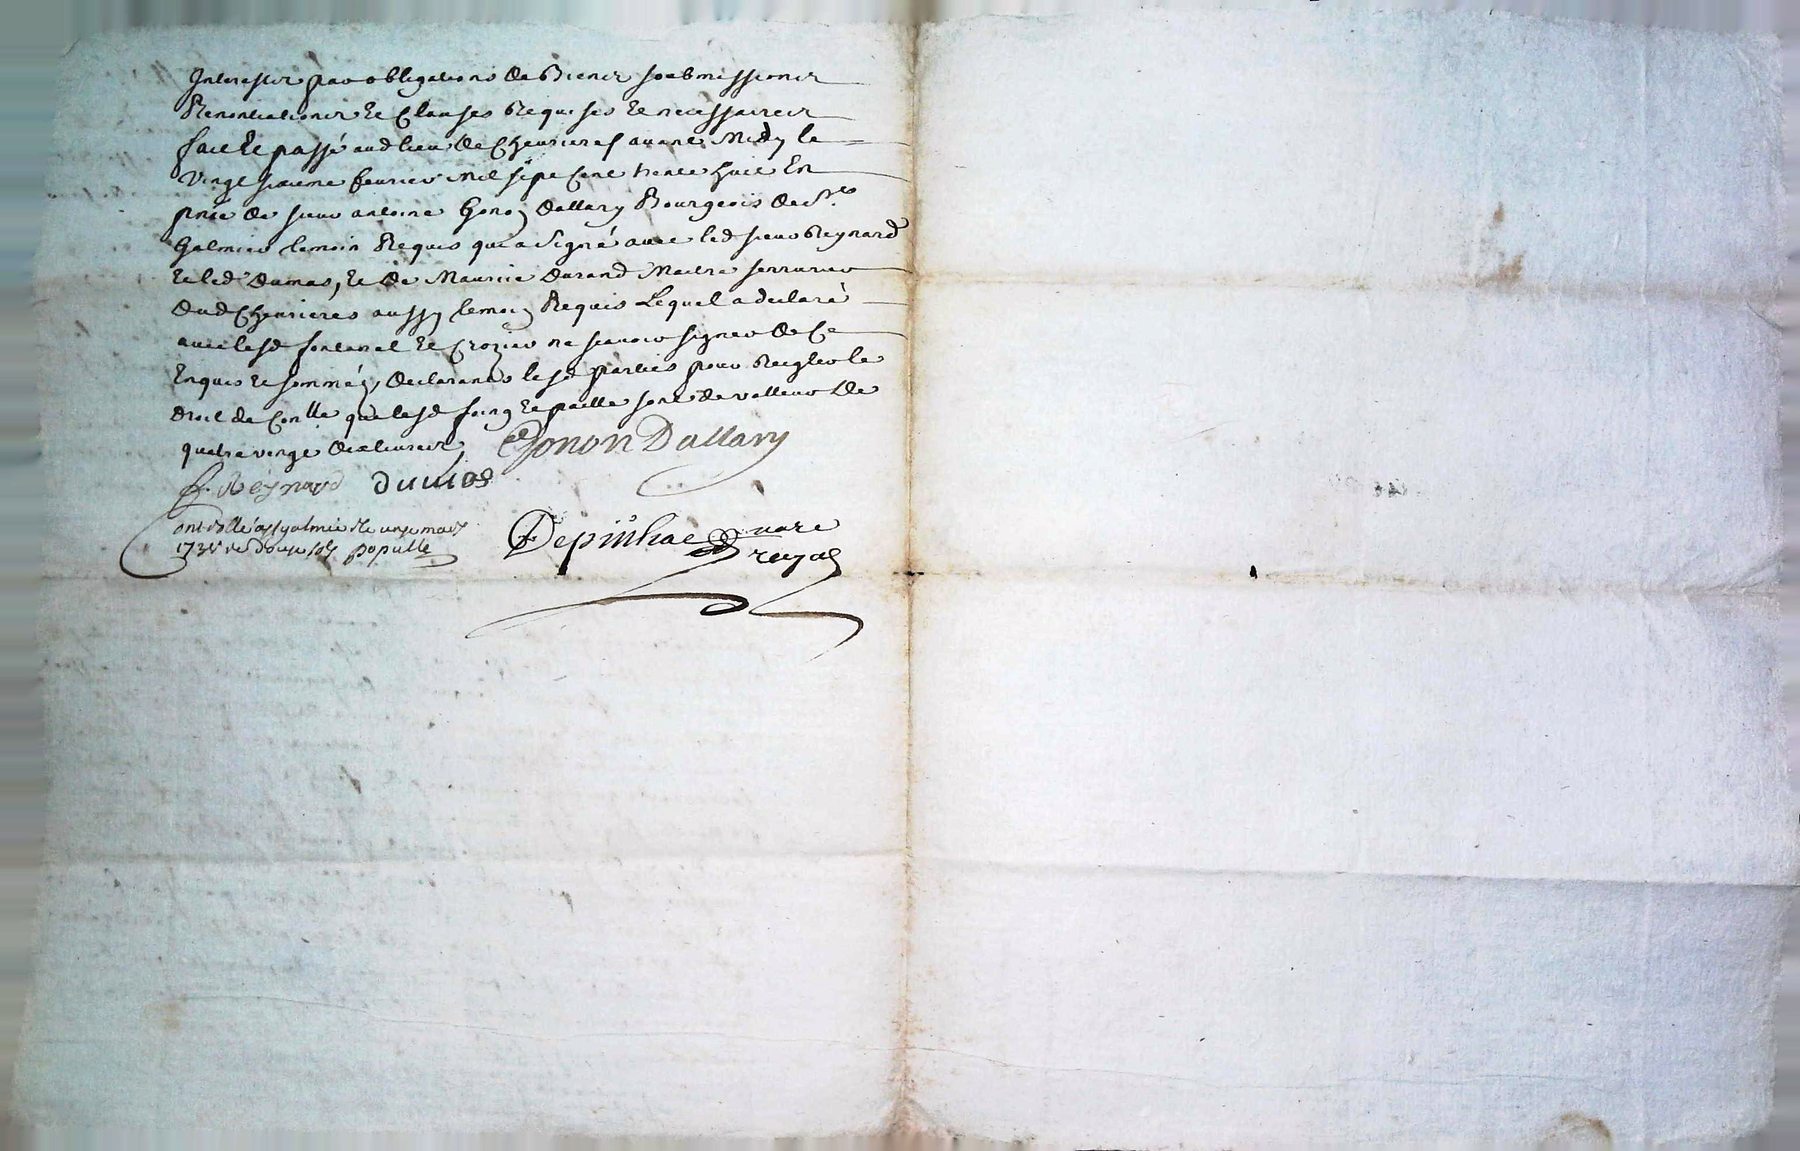 Interestz par obligations de Biens soubmissions
Renontiations et Clauses Requises et necessaires
fait et passé aud lieu de Chevrieres avant Midy le
Vingt sixieme fevrier Mil sept Cent trente huit En
pnce de sieur antoine Gonon Dallary Bourgeois de St
Galmier temoin Requis qui a signé avec led sieur Reynard
et led Dumas, et de Maurice Durand Maitre serrurier
dud Chevrieres aussy temoin Requis Lequel a declaré
avec lesd fontanel et Crozier ne scavoir signer de Ce
Enquis et sommés, declarants lesd parties pour Reigler le
droit de Conlle que lesd foing et paille sont de valleur de
quatre vingt dix livres
Gonon Dallary
Reynard Dumas
Controllé a St galmier le unze mars
1738 re douze sols populle
Depinhac nore
royal